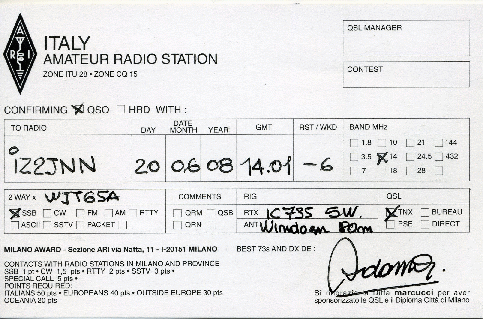 ARI
ITALY
AMATEUR RADIO STATION
ZONE ITU 28 • ZONE CQ 15
QSL MANAGER
CONTEST
CONFIRMING X QSO HRD WITH :
TO RADIO DAY DATE MONTH YEAR GMT RST / WKD BAND MHz
IZ2JNN 20 06 08 14.01 -6
1.8 10 21 144
3.5 X 14 24.5 432
7 18 28
2 WAY x WJT65A COMMENTS RIG QSL
X SSB CW FM AM RTTY QRM QSB RTX IC735 5W. X TNX BUREAU
ASCII SSTV PACKET QRN ANT Windom 80m PSE DIRECT
MILANO AWARD - Sezione ARI via Natta, 11 - I-20151 MILANO
BEST 73s AND DX DE :
CONTACTS WITH RADIO STATIONS IN MILANO AND PROVINCE
SSB 1 pt • CW 1,5 pts • RTTY 2 pts • SSTV 3 pts •
SPECIAL CALL 5 pts •
POINTS REQUIRED:
ITALIANS 50 pts • EUROPEANS 40 pts • OUTSIDE EUROPE 30 pts
OCEANIA 20 pts
Si ringrazia la ditta marcucci per aver
sponsorizzato le QSL e il Diploma Città di Milano